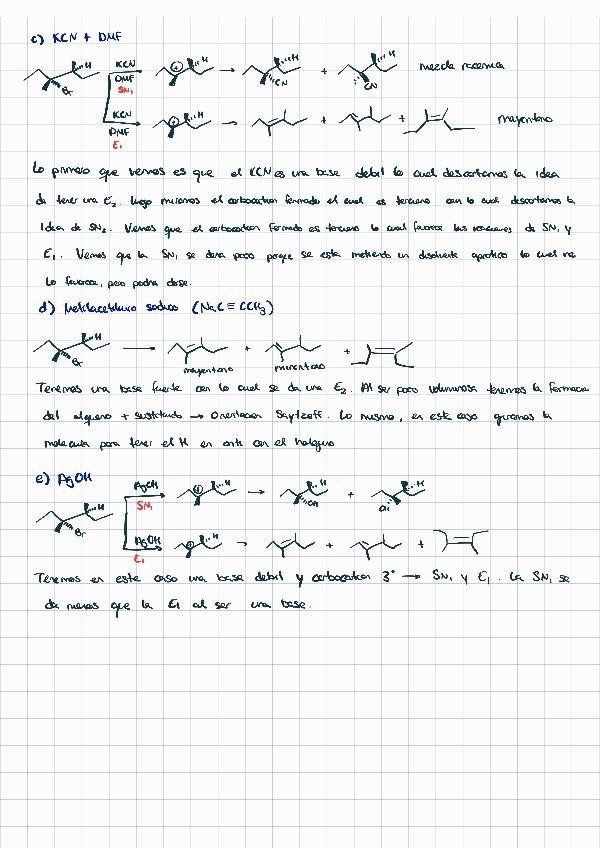 c) KCN + DMF
KCN
DMF
SN1
H
Br
H
H
CN
+
H
CN
mezcla racemica
KCN
DMF
E1
H
+
+
mayoritario
Lo primero que vemos es que el KCN es una base debil lo cual descartamos la idea
de tener una E2. Luego miramos el carbocation formado el cual es terciario con lo cual descartamos la
idea de SN2. Vemos que el carbocation formado es terciario lo cual favorece las reacciones de SN1 y
E1. Vemos que la SN1 se dara poco porque se esta metiendo un disolvente aprotico lo cual no
lo favorece, pero podria darse.
d) Metilacetiluro sodico (NaC≡CCH3)
H
Br
+
+
mayoritario
minoritario
Tenemos una base fuerte con lo cual se da una E2. Al ser poco voluminosa tenemos la formacion
del alqueno + sustituido → Orientacion Saytzeff. Lo mismo, en este caso giramos la
molecula para tener el H en anti con el halogeno
e) AgOH
AgOH
SN1
H
Br
H
H
OH
+
H
OH
AgOH
E1
H
+
+
Tenemos en este caso una base debil y carbocation 3° → SN1 y E1. La SN1 se
da menos que la E1 al ser una base.